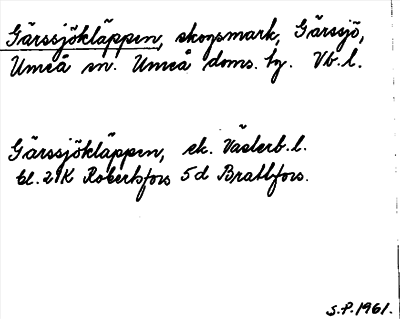 Gärssjökläppen, skogsmark, Gärssjö,
Umeå sn. Umeå doms. bg. Vb. l.
Gärssjökläppen, ek. Västerb. l.
bl. 21K Robertsfors 5d Brattfors.
S.P. 1961.